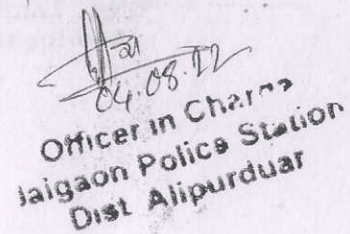 04.08.22
Officer in Charge
Jaigaon Police Station
Dist Alipurduar